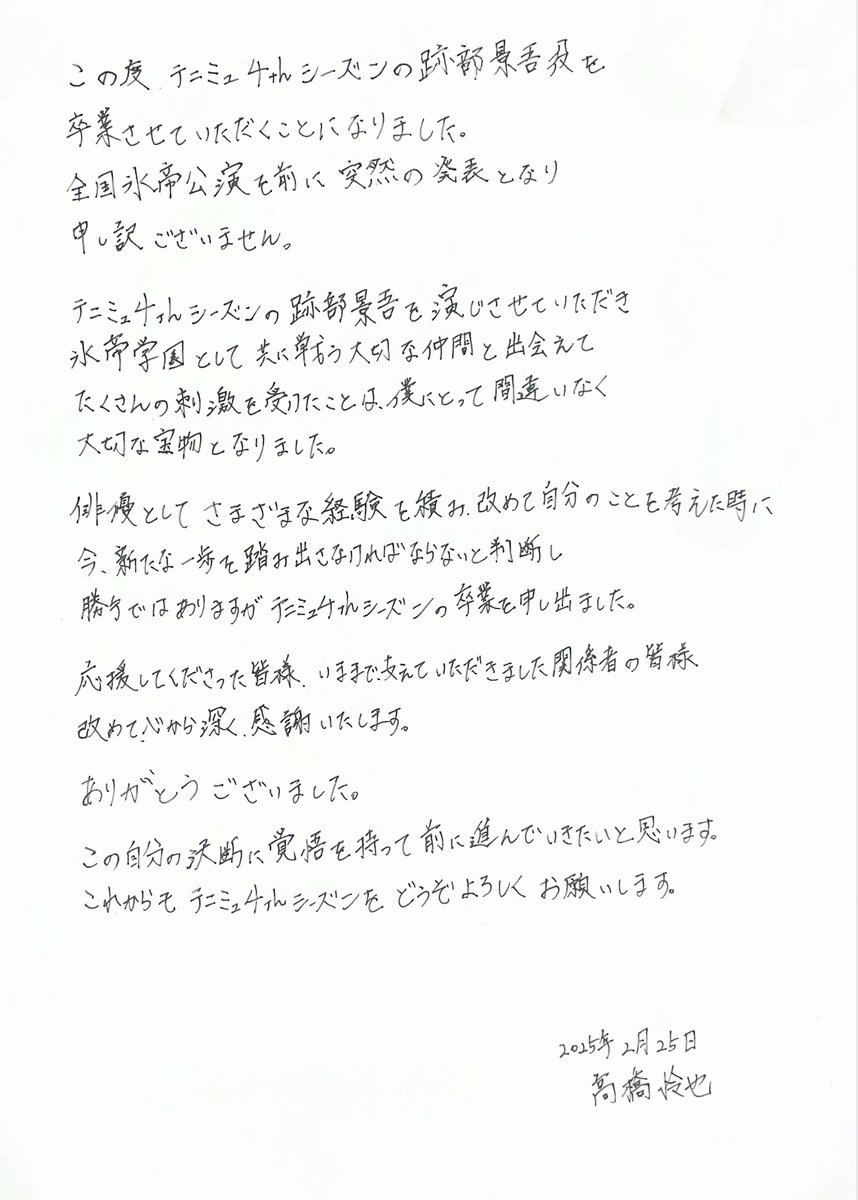 この度 テニミュ4thシーズンの跡部景吾役を
卒業させていただくことになりました。
全国氷帝公演を前に 突然の発表となり
申し訳ございません。
テニミュ4thシーズンの跡部景吾を演じさせていただき
氷帝学園として 共に戦う大切な仲間と出会えて
たくさんの刺激を受けたことは、僕にとって間違いなく
大切な宝物となりました。
俳優として さまざまな経験を積み、改めて自分のことを考えた時に
今、新たな一歩を踏み出さなければならないと判断し
勝手ではありますがテニミュ4thシーズンの卒業を申し出ました。
応援してくださった皆様、いままで支えていただきました関係者の皆様
改めて、心から深く、感謝いたします。
ありがとうございました。
この自分の決断に覚悟を持って前に進んでいきたいと思います。
これからも、テニミュ4thシーズンを どうぞよろしく お願いします。
2025年2月25日
高橋怜也